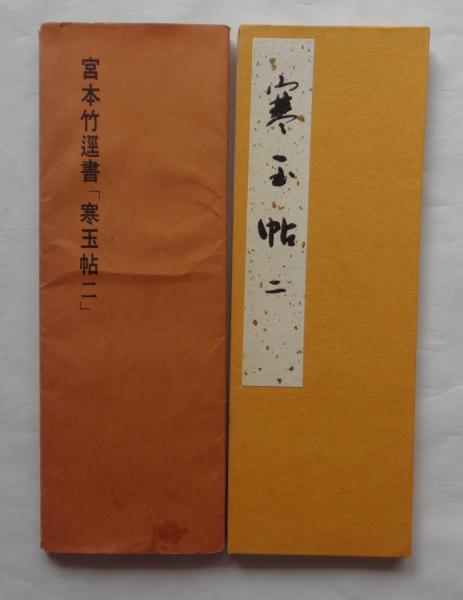 宮本竹逕書「寒玉帖二」
寒玉帖二